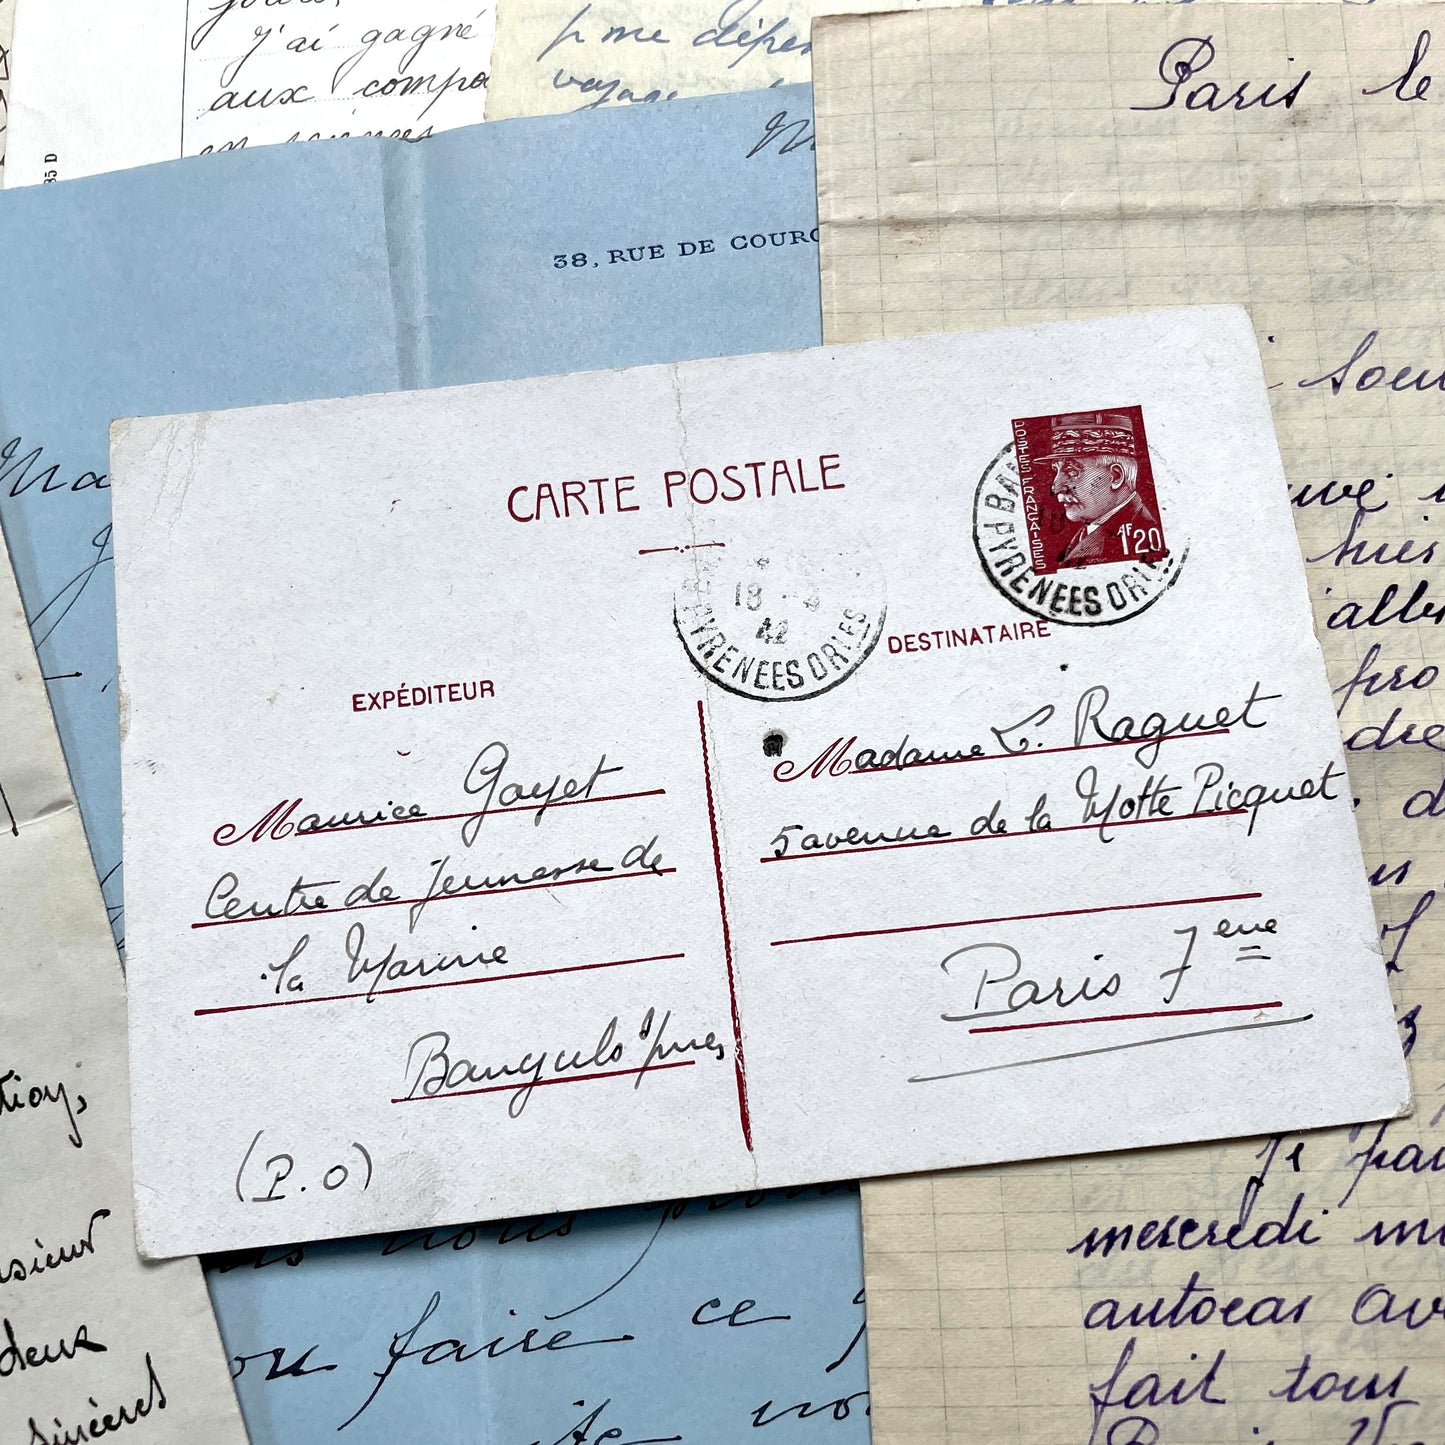 j'ai gagné
aux compo
p me dépen
voyage
Paris le
85 D
38, RUE DE COURC
Ma
CARTE POSTALE
POSTES FRANÇAISES
1F20
BAN
PYRENEES ORIES
18
42
PYRENEES ORIES
EXPÉDITEUR
DESTINATAIRE
Maurice Goyet
Centre de Jeunesse de
la Marine
Banyuls s/mer
(P.O)
Madame L. Raguet
5 avenue de la Motte Picquet
Paris 7eme
tion,
sieur
deux
sincères
nous
ou faire ce
Je par
mercredi m
autocar av
fait tous